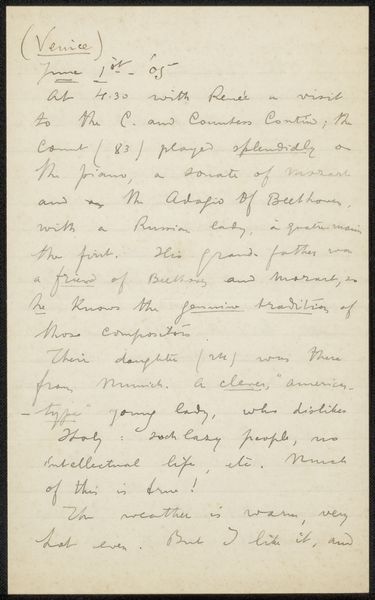 (Venice)
June 1st - '05
At 4.30 with Renée a visit
to the C. and Countess Contin; the
Count (83) played splendidly on
the piano, a sonate of Mozart
and the Adagio of Beethoven,
with a Russian lady, à quatre mains
the first. His grand father was
a friend of Beethoven and Mozart, so
he knows the genuine tradition of
those compositors.
Their daughter (24) was there
from Munich. A clever, "american-
-type" young lady, who dislikes
Italy: such lazy people, no
intellectual life, etc. Much
of this is true!
The weather is warm, very
hot even. But I like it, and